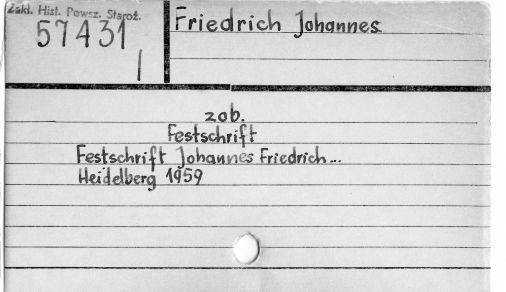 Zakł. Hist. Powsz. Staroż.
57431
Friedrich Johannes
zob.
Festschrift
Festschrift Johannes Friedrich...
Heidelberg 1959